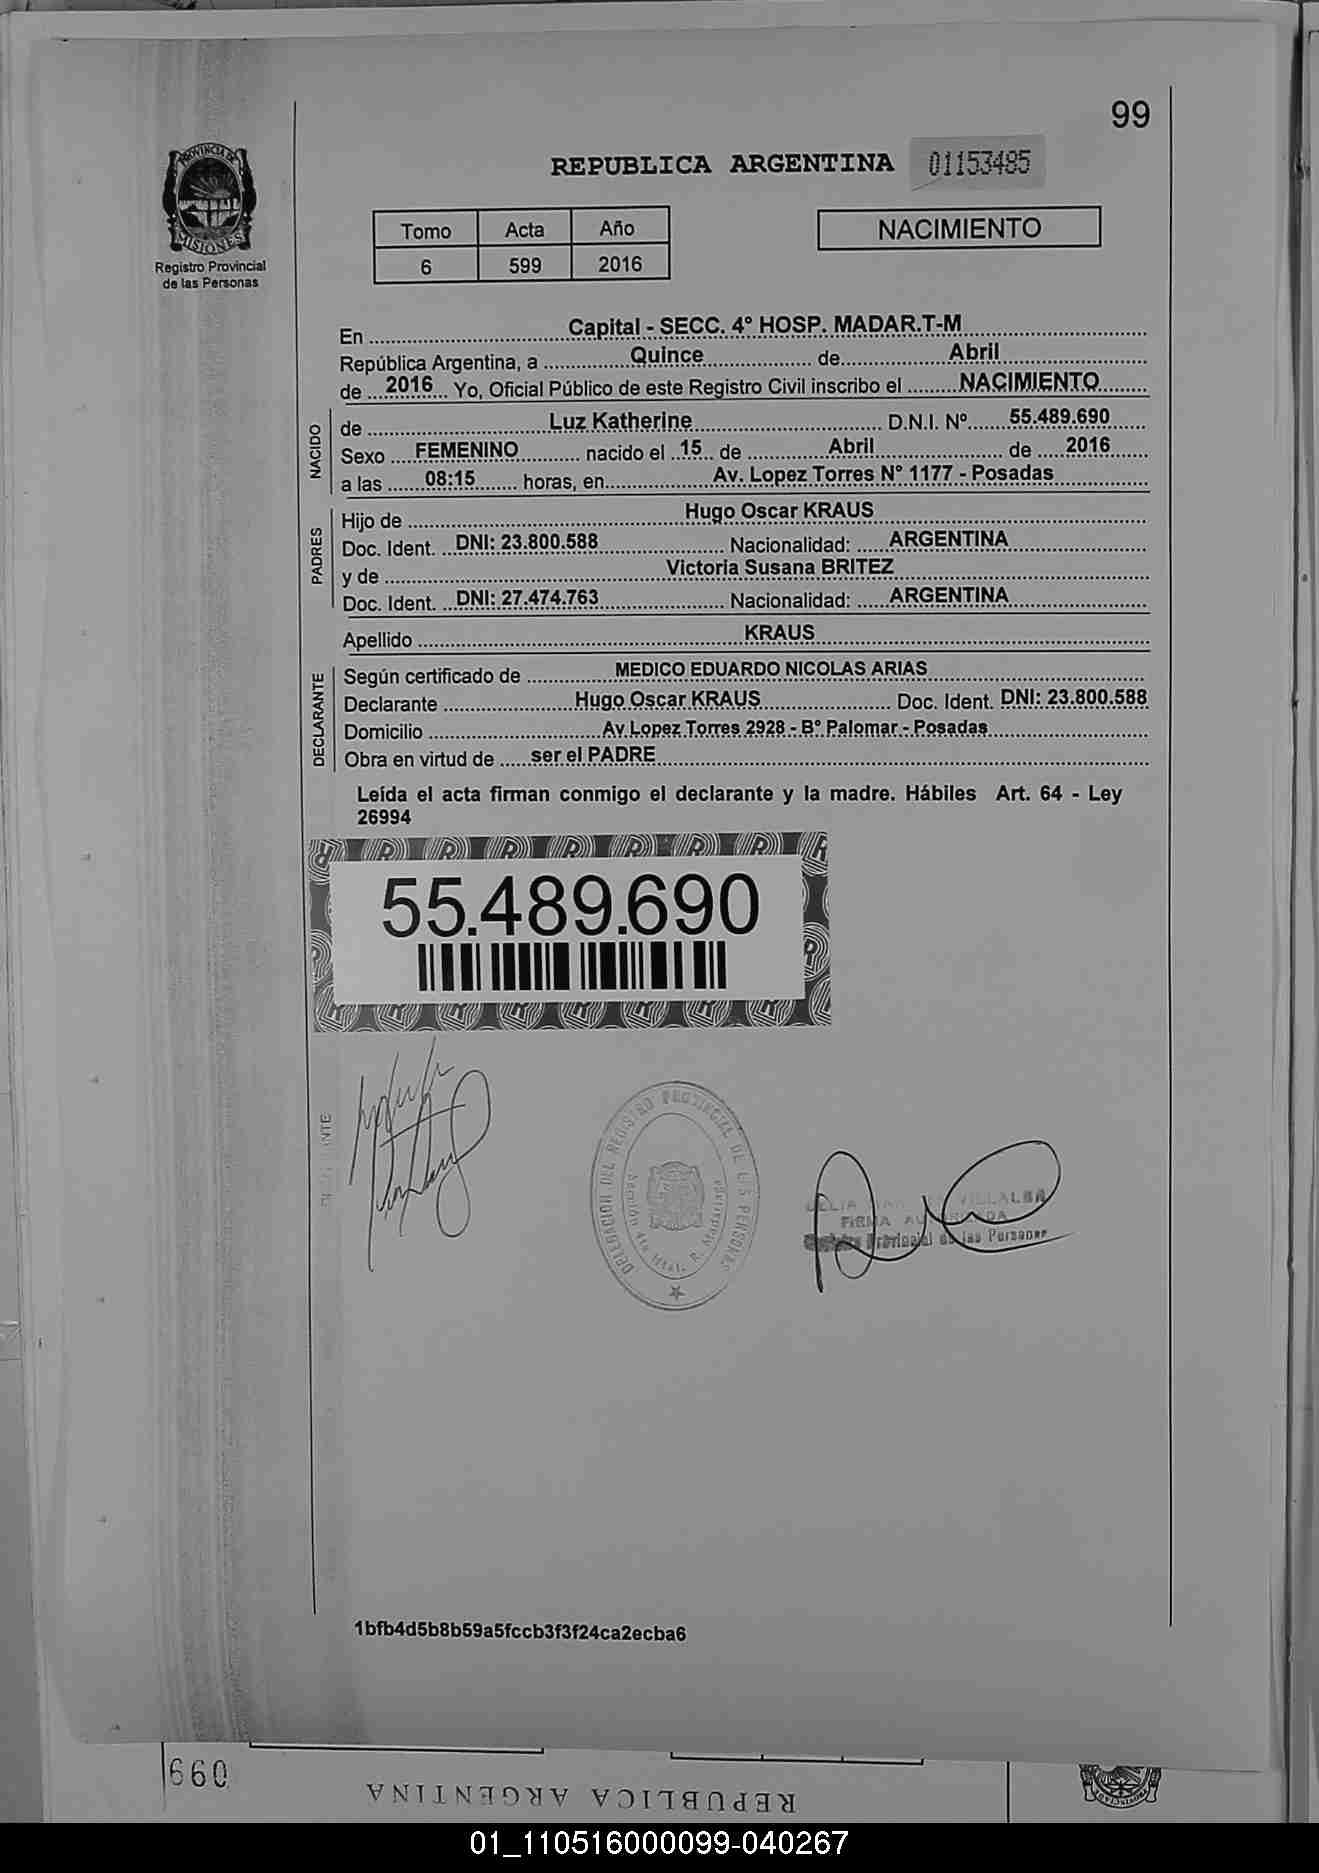 99
PROVINCIA DE
MISIONES
Registro Provincial
de las Personas
REPUBLICA ARGENTINA 01153485
Tomo Acta Año
6 599 2016
NACIMIENTO
En Capital - SECC. 4° HOSP. MADAR.T-M
República Argentina, a Quince de Abril
de 2016 Yo, Oficial Público de este Registro Civil inscribo el NACIMIENTO
NACIDO
de Luz Katherine D.N.I. N° 55.489.690
Sexo FEMENINO nacido el 15 de Abril de 2016
a las 08:15 horas, en Av. Lopez Torres N° 1177 - Posadas
PADRES
Hijo de Hugo Oscar KRAUS
Doc. Ident. DNI: 23.800.588 Nacionalidad: ARGENTINA
y de Victoria Susana BRITEZ
Doc. Ident. DNI: 27.474.763 Nacionalidad: ARGENTINA
Apellido KRAUS
DECLARANTE
Según certificado de MEDICO EDUARDO NICOLAS ARIAS
Declarante Hugo Oscar KRAUS Doc. Ident. DNI: 23.800.588
Domicilio Av Lopez Torres 2928 - B° Palomar - Posadas
Obra en virtud de ser el PADRE
Leída el acta firman conmigo el declarante y la madre. Hábiles Art. 64 - Ley
26994
55.489.690
DELEGACION DEL REGISTRO PROVINCIAL DE LAS PERSONAS
VILLALBA
FIRMA AUTORIZADA
Registro Provincial de las Personas
1bfb4d5b8b59a5fccb3f3f24ca2ecba6
099
REPUBLICA ARGENTINA
01_110516000099-040267